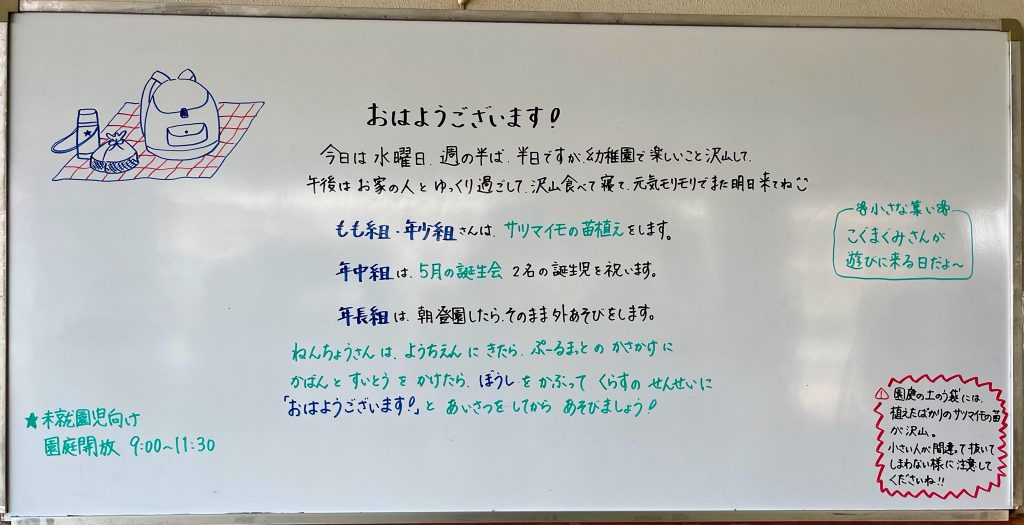 おはようございます!
今日は水曜日、週の半ば、半日ですが、幼稚園で楽しいこと沢山して、
午後はお家の人とゆっくり過ごして、沢山食べて寝て、元気モリモリでまた明日来てね
もも組・年少組さんは、サツマイモの苗植えをします。
年中組は、5月の誕生会 2名の誕生児を祝います。
年長組は、朝登園したら、そのまま外あそびをします。
ねんちょうさんは、ようちえんに きたら、ぷーるまっとの かさかけに
かばんと すいとう を かけたら、ぼうし を かぶって くらすの せんせいに
「おはようございます!」と あいさつを してから あそびましょう!
小さな集い
こぐまぐみさんが
遊びに来る日だよ~
★未就園児向け
園庭開放 9:00~11:30
! 園庭の土のう袋には、
植えたばかりのサツマイモの苗
が沢山。
小さい人が間違って抜いて
しまわない様に注意して
くださいね!!